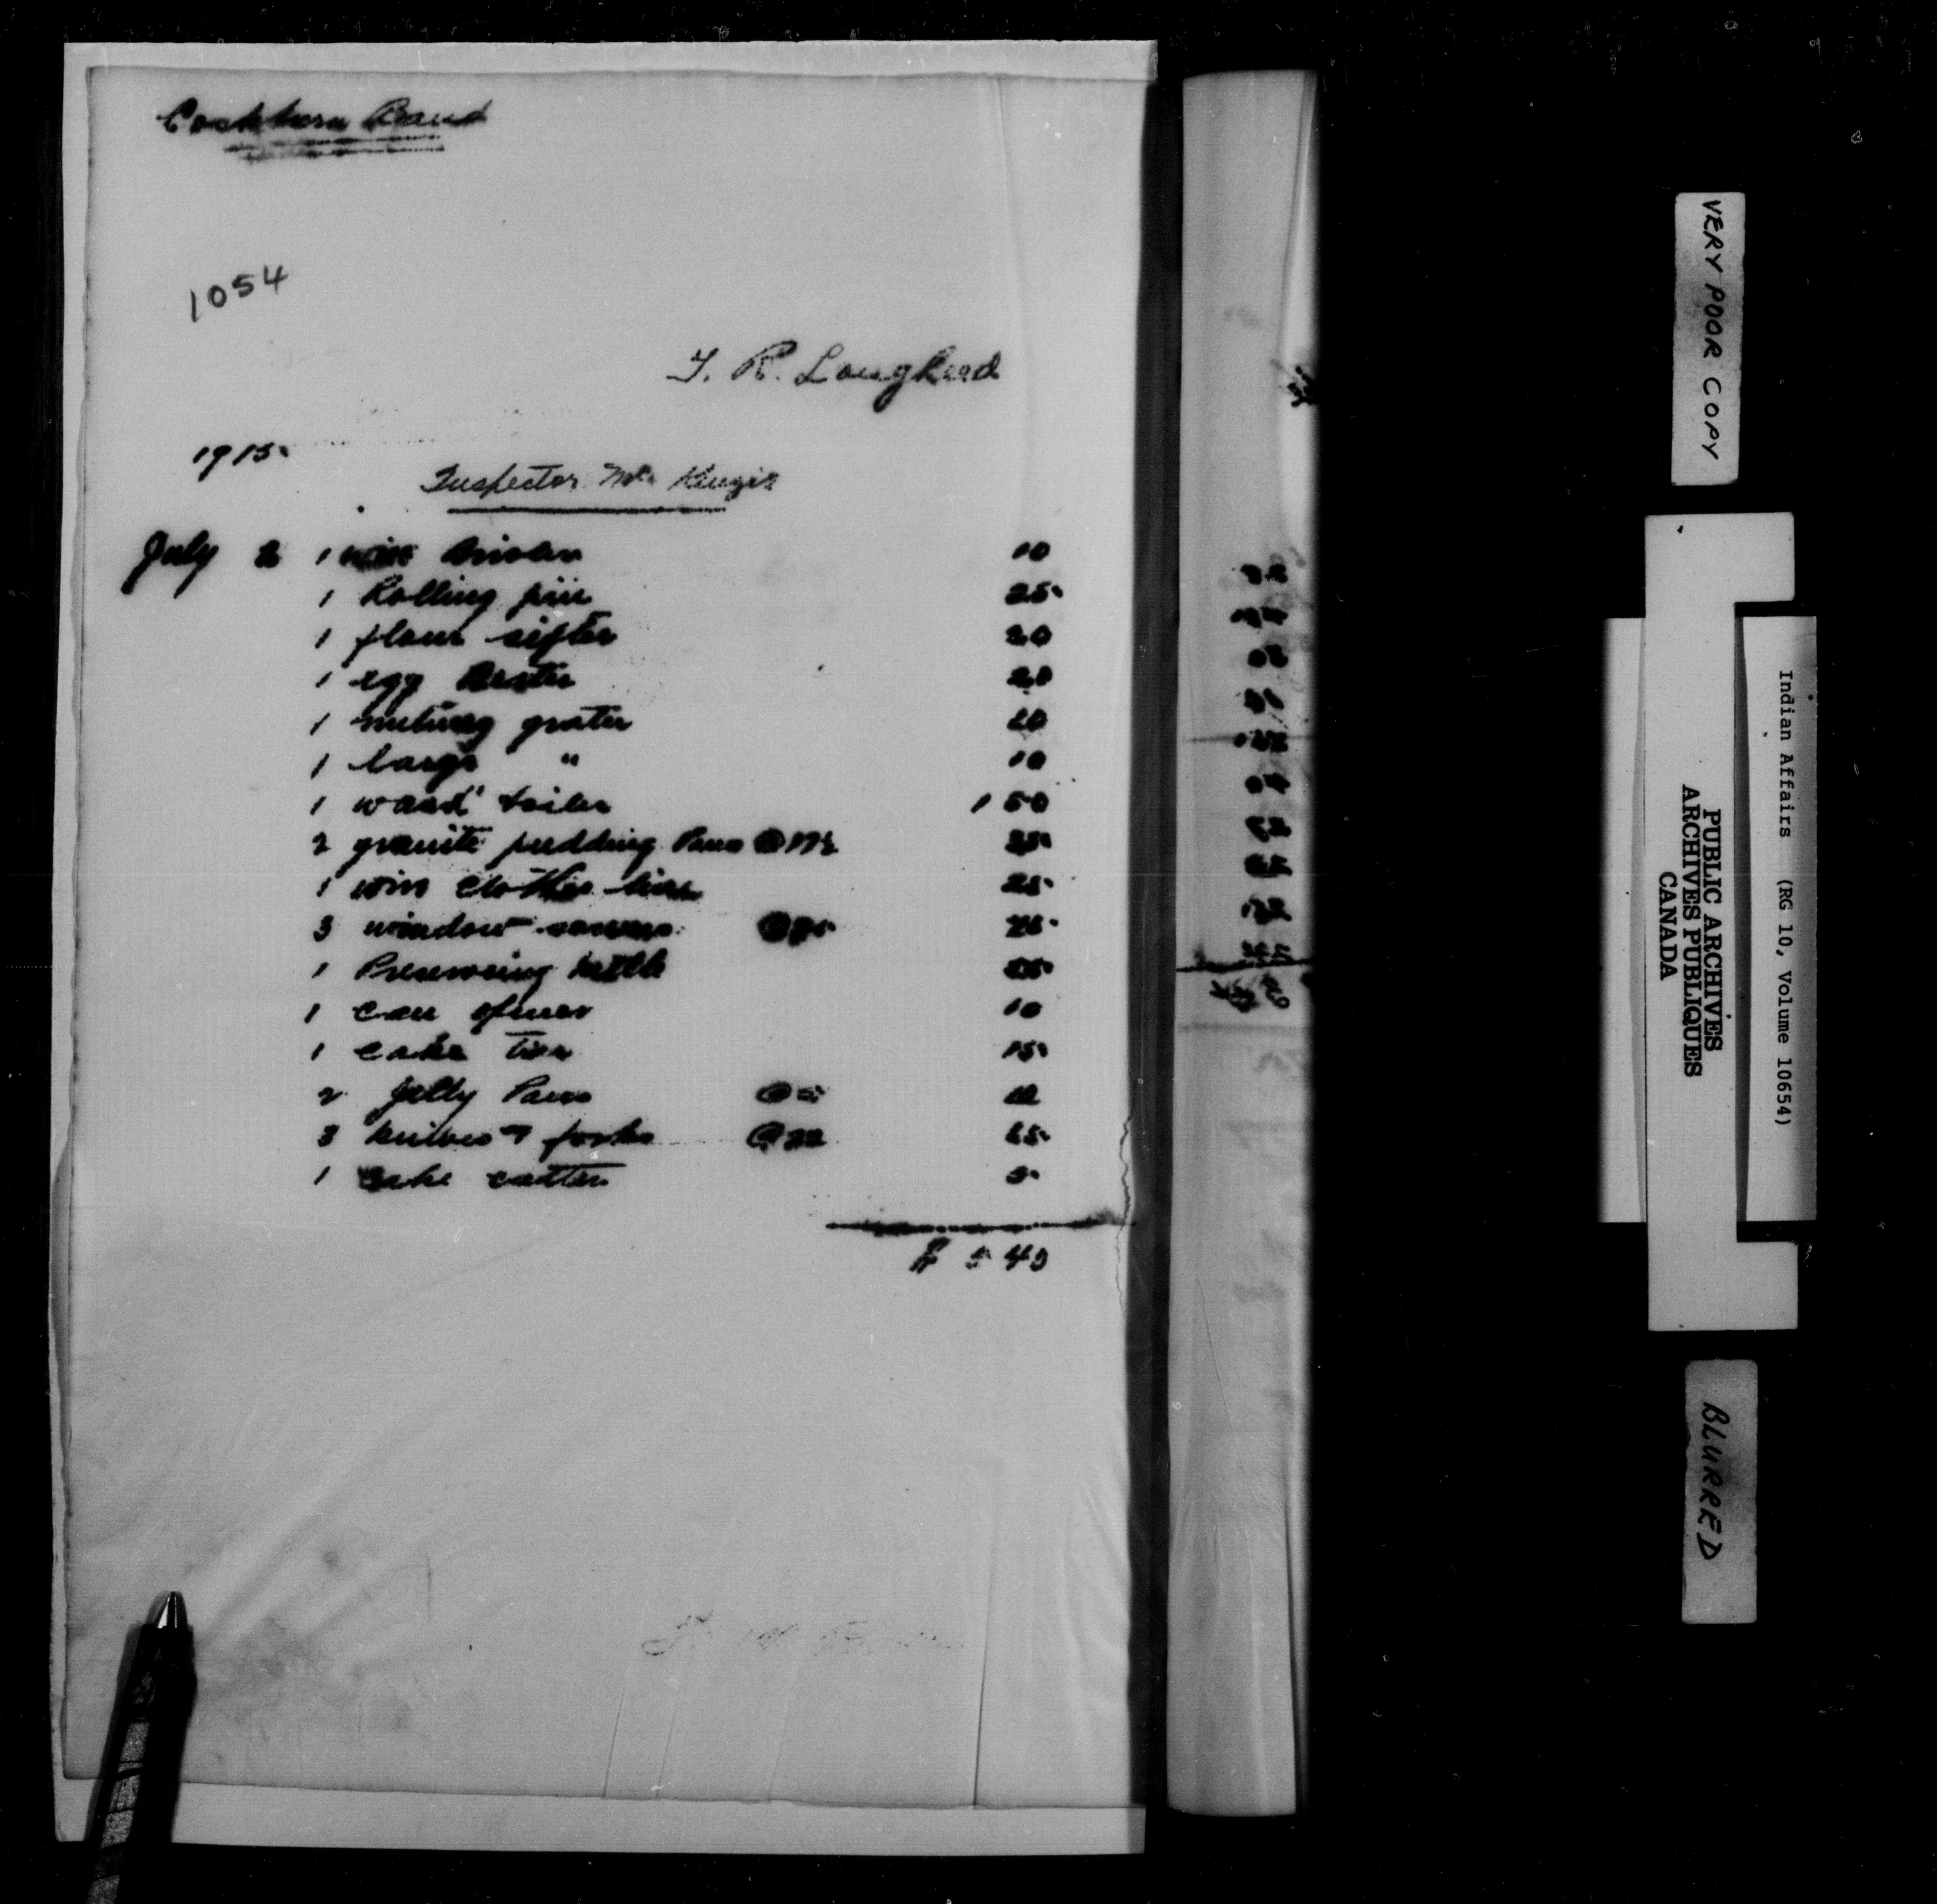 Cockburn Band
1054
T. R. Lougheed
1915
Inspector McKenzie
July 2 1 wire 10
1 Rolling pin 25
1 flour sifter 20
1 egg Beater 20
1 nutmeg grater 10
1 large " 10
1 wash boiler 1 50
2 granite pudding Pans @ 17½ 35
1 wire clothes line 25
3 window screens @ 25 75
1 Preserving kettle
1 can opener 10
1 cake tin 15
2 Jelly Pans @ 5 10
3 knives & forks @ 22 65
1 cake cutter 5
$ 5 45
VERY POOR COPY
Indian Affairs (RG 10, Volume 10654)
PUBLIC ARCHIVES
ARCHIVES PUBLIQUES
CANADA
BLURRED